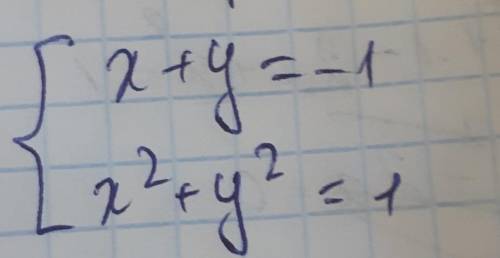 x + y = -1
x² + y² = 1